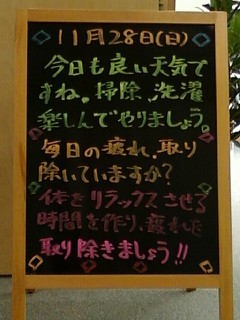 11月28日(日)
今日も良い天気で
すね。掃除、洗濯
楽しんでやりましょう。
毎日の疲れ、取り
除いていますか?
体をリラックスさせる
時間を作り、疲れた
取り除きましょう!!